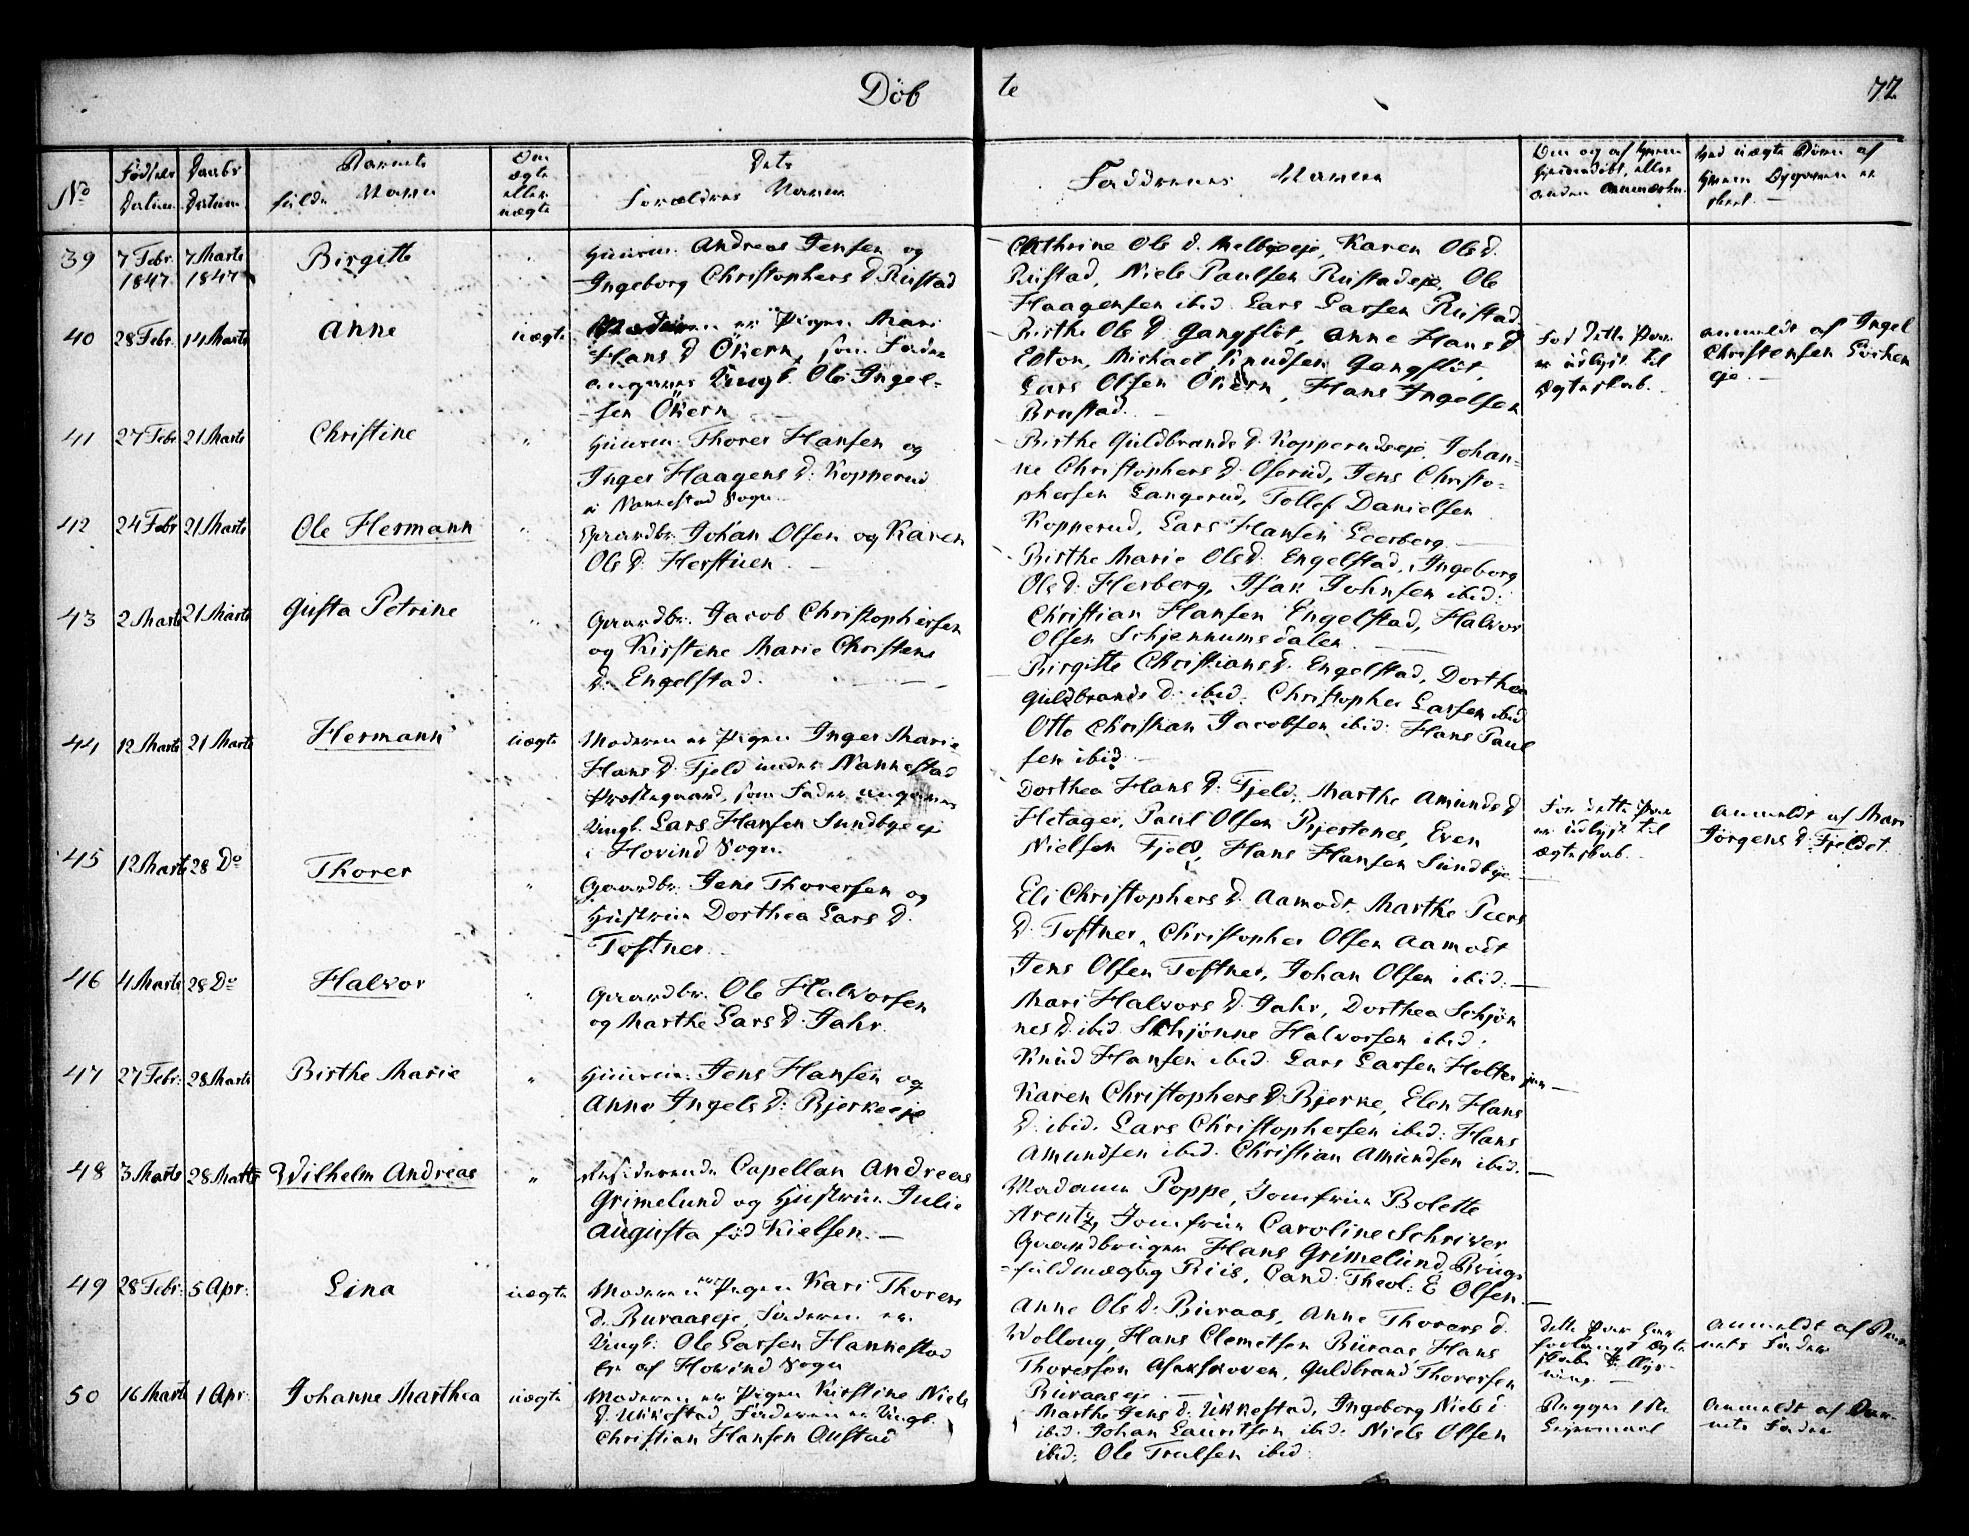 Döb te 72
No
Fødsels Datum
Daabs Datum
Barnets fulde Navn
Om ægte eller uægte
Dets Forældres Navne
Faddrenes Navne
Ved uægte Børn af hvem Opgaven er skeet.
39 7 Febr. 1847 7 Marts 1847 Birgitte
Huusm. Andreas Jensen og
Ingeborg Christophers D. Rustad
Cathrine Ols D. Melbyeeje, Karen Ols d.
Rustad, Niels Paulsen Rustadeje, Ole
Haagensen ibid. Lars Larsen Rustad
40 28 Febr. 14 Marts Anne uægte
Moderen er Pigen Mari
Hans D Ökern, som Fader
angives Ungk. Ole Ingel-
sen Ökern
Birthe Ols D. Gangflöt, Anne Hans D
Elton, Michael Knudsen Gangflöt,
Lars Olsen Ökern, Hans Ingelsen
Brustad.
For dette Par
er udlyst til
Ægteskab.
anmeldt af Ingel
Christensen
eje
41 27 Febr 21 Marts Christine "
Huusm. Thorer Hansen og
Inger Haagens D. Kopperud
i Nannestad Sogn
Birthe Guldbrands D. Kopperudseje, Johan-
ne Christophers D. Oserud, Jens Christo-
phersen Langerud, Tollef Danielsen
Kopperud, Lars Hansen Leerberg
42 24 Febr 21 Marts Ole Hermann "
Gaardbr. Johan Olsen og Karen
Ols D. Herstuen
Birthe Marie Olsd. Engelstad, Ingeborg
Ols D. Herberg, Isak Johnsen ibid.
Christian Hansen Engelstad, Halvor
Olsen Schjennumsdalen
43 2 Marts 21 Marts Gusta Petrine "
Gaardbr. Jacob Christophersen
og Kirstine Marie Christens
D. Engelstad.
Birgitte Christiansd. Engelstad, Dorthea
Guldbrands D. ibid. Christopher Larsen ibid
Otto Christian Jacobsen ibid: Hans Paul
sen ibid
44 12 Marts 21 Marts Hermann uægte
Moderen er Pigen Inger Marie
Hans D. Fjeld under Nannestad
Præstegaard, som Fader angives
Ungk. Lars Hansen Sundbyeeje
i Hovind Sogn
Dorthea Hans D. Fjeld, Marthe Amunds D
Hetager, Paul Olsen Bjertenes, Even
Nielsen Fjeld, Hans Hansen Sundbye
For dette Par
er udlyst til
Ægteskab.
anmeldt af Mari
Jörgens D. Fjeldet
45 12 Marts 28 Do Thorer "
Gaardbr. Jens Thorersen og
Hustrue Dorthea Lars D.
Toftner.
Eli Christophers D. Aamodt, Marthe Peers
D. Toftner, Christopher Olsen Aamodt
Jens Olsen Toftner, Johan Olsen ibid.
46 4 Marts 28 Do Halvor "
Gaardbr. Ole Halvorsen
og Marthe Lars D. Jahr.
Mari Halvors D. Jahr, Dorthea Schjøn
nes D. ibid. Schjønne Halvorsen ibid.
Knud Hansen ibid. Lars Larsen Holter jun
47 27 Febr. 28 Marts Birthe Marie "
Huusm. Jens Hansen og
Anne Ingels D. Bjerkeeje
Karen Christophers D. Bjerke, Elen Hans
D. ibid. Lars Christophersen ibid: Hans
Amundsen ibid. Christian Amundsen ibid.
48 3 Marts 28 Marts Wilhelm Andreas "
Residerende Capellan Andreas
Grimelund og Hustrue Julie
Augusta fød Kielsen.
Madame Poppe, Jomfrue Bolette
Arentz, Jomfrue Caroline Schriver
Gaardbruger Hans Grimelund, Brugs
fuldmægtig Riis, Cand: Theol: E Olsen.
49 28 Febr. 5 Apr. Lina uægte
Moderen er Pigen Kari Thorers
d. Buraaseje, Faderen er
Ungk: Ole Larsen Hannestad
Er af Hovind Sogn
Anne Ols D. Buraas, Anne Thorers d.
Wolloug, Hans Clemetsen Buraas Hans
Thorersen Asakskoven, Guldbrand Thorersen
Buraaseje
Dette Par har
forlangt Ægte
skabs Lys-
ning.
Anmeldt af Bar
nets Fader
50 16 Marts 1 Apr. Johanne Marthea uægte
Moderen er Pigen Kirstine Niels
D. Ukkestad, Faderen er Ungk.
Christian Hansen Austad
Marthe Jens D. Ukkestad, Ingeborg Niels D
ibid. Johan Lauritsen ibid. Niels Olsen
ibid: Ole Trulsen ibid.
Begges 1ste
Leiermaal
Anmeldt af Bar-
nets Fader